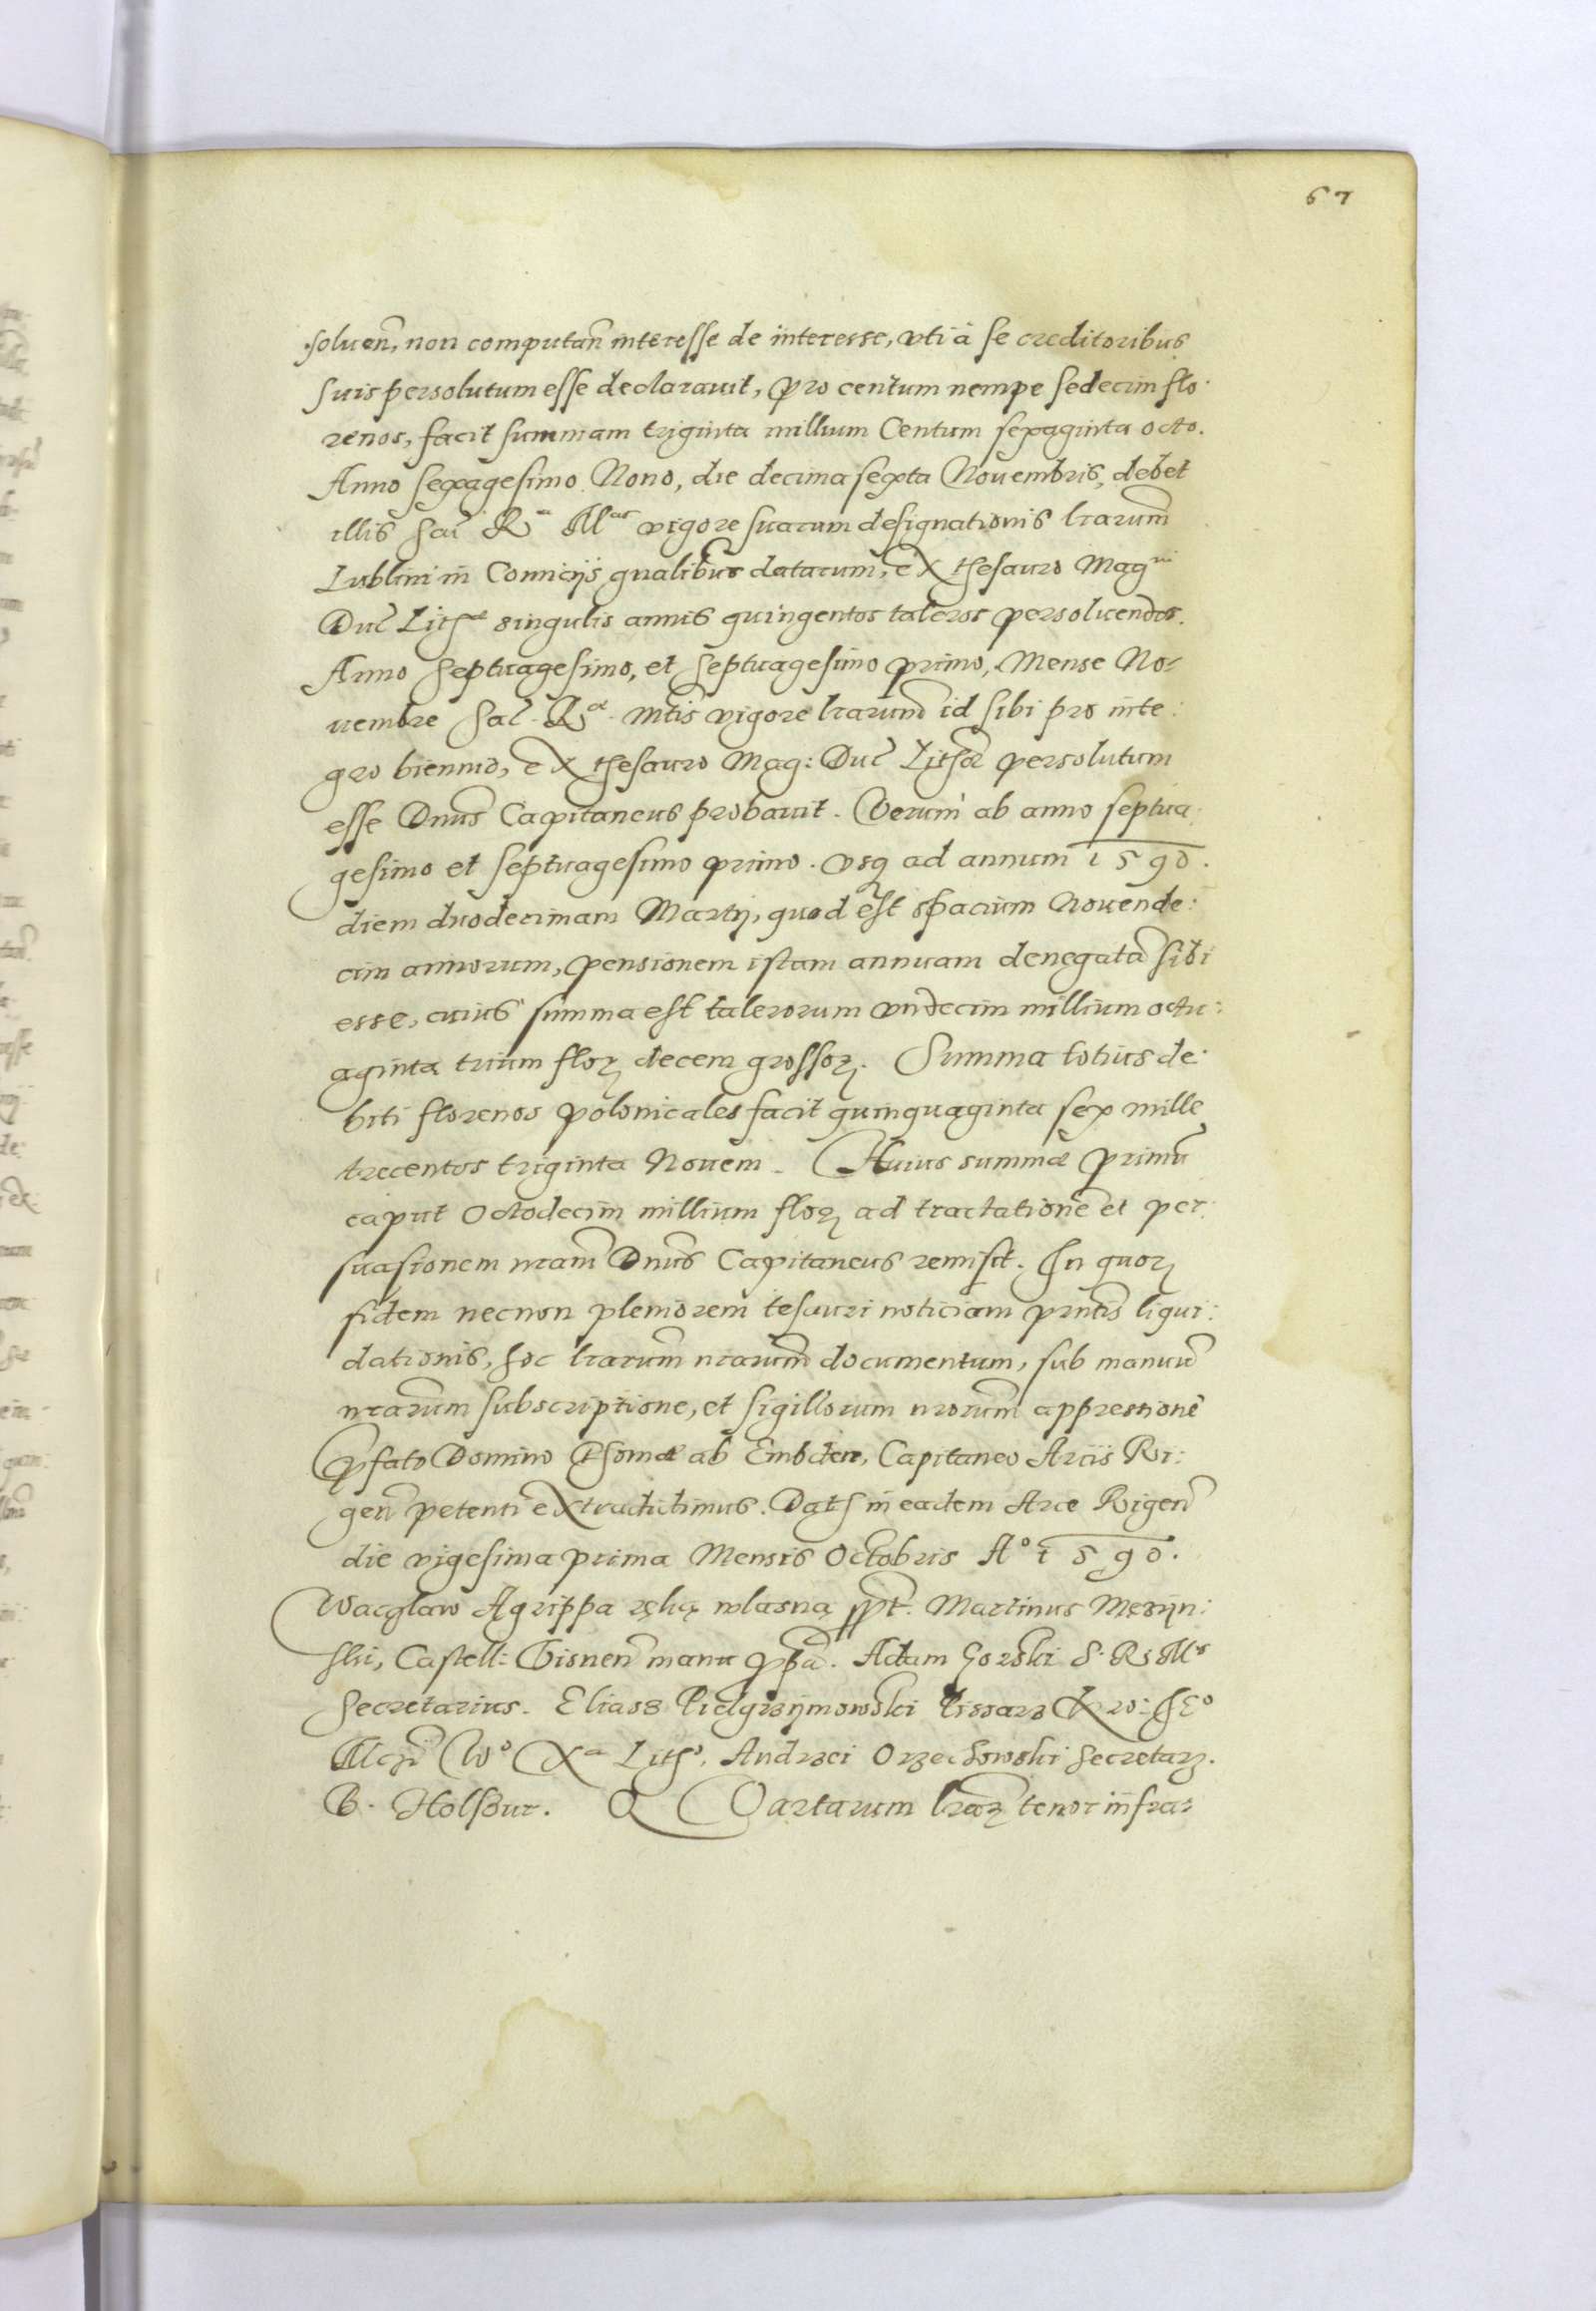 67
soluen̄, non computan̄ interesse de interesse, vti à se creditoribus
suis persolutum esse declarauit, pro centum nempe sedecim flo:
renos, facit summam triginta millium Centum sexaginta octo.
Anno sexagesimo Nono, die decima sexta Nouembris, debet
illis Sac̄ R^a M^as vigore suarum designationis l̄rarum
Lublini in Comicijs gnalibus datarum, ex thesauro Mag^ni
Duc̄ Lith^æ singulis annis quingentos taleros persoluendos.
Anno septuagesimo, et septuagesimo primo, Mense No:
uembre Sac. R^æ. mtis vigore l̄rarum id sibi pro inte:
gro biennio, ex thesauro Mag: Duc̄ Lithæ persolutum
esse Dnus Capitaneus probauit. Verum ab anno septua:
gesimo et septuagesimo primo. vsq ad annum 1590.
diem duodecimam Martij, quod est spacium Nouende:
cim annorum, pensionem istam annuam denegatā sibi
esse, cuius summa est talerorum vndecim millium octu:
aginta trium floꝝ decem grossoꝝ. Summa totius de:
biti florenos polonicales facit quinquaginta sex mille
trecentos triginta Nouem. Huius summæ primū
caput Octodecim millium floꝝ ad tractationē et per:
suasionem nram Dnus Capitaneus remisit. In quoꝝ
fidem necnon pleniorem tesauri noticiam pntis liqui:
dationis, hoc l̄rarum nrarum documentum, sub manuū
nrarum subscriptione, et sigillorum nrorum appressione
p̄fato Domino Thomæ ab Embden, Capitaneo Arcis Ri:
gen̄ petenti extradidimus. Dath in eadem Arce Rigen̄
die vigesima prima Mensis Octobris A° 1590.
Wacglaw Agrippa ręką wlasną sspt. Martinus
Castell: manu ppa. Adam Gorski S. R: M^s
Secretarius. Eliasz Pielgrzijmowski Pissarz
Lith°. Andrzei Orzechowski Secretarz.
B. Holsßur. Qvartarum l̄raꝝ tenor infra: